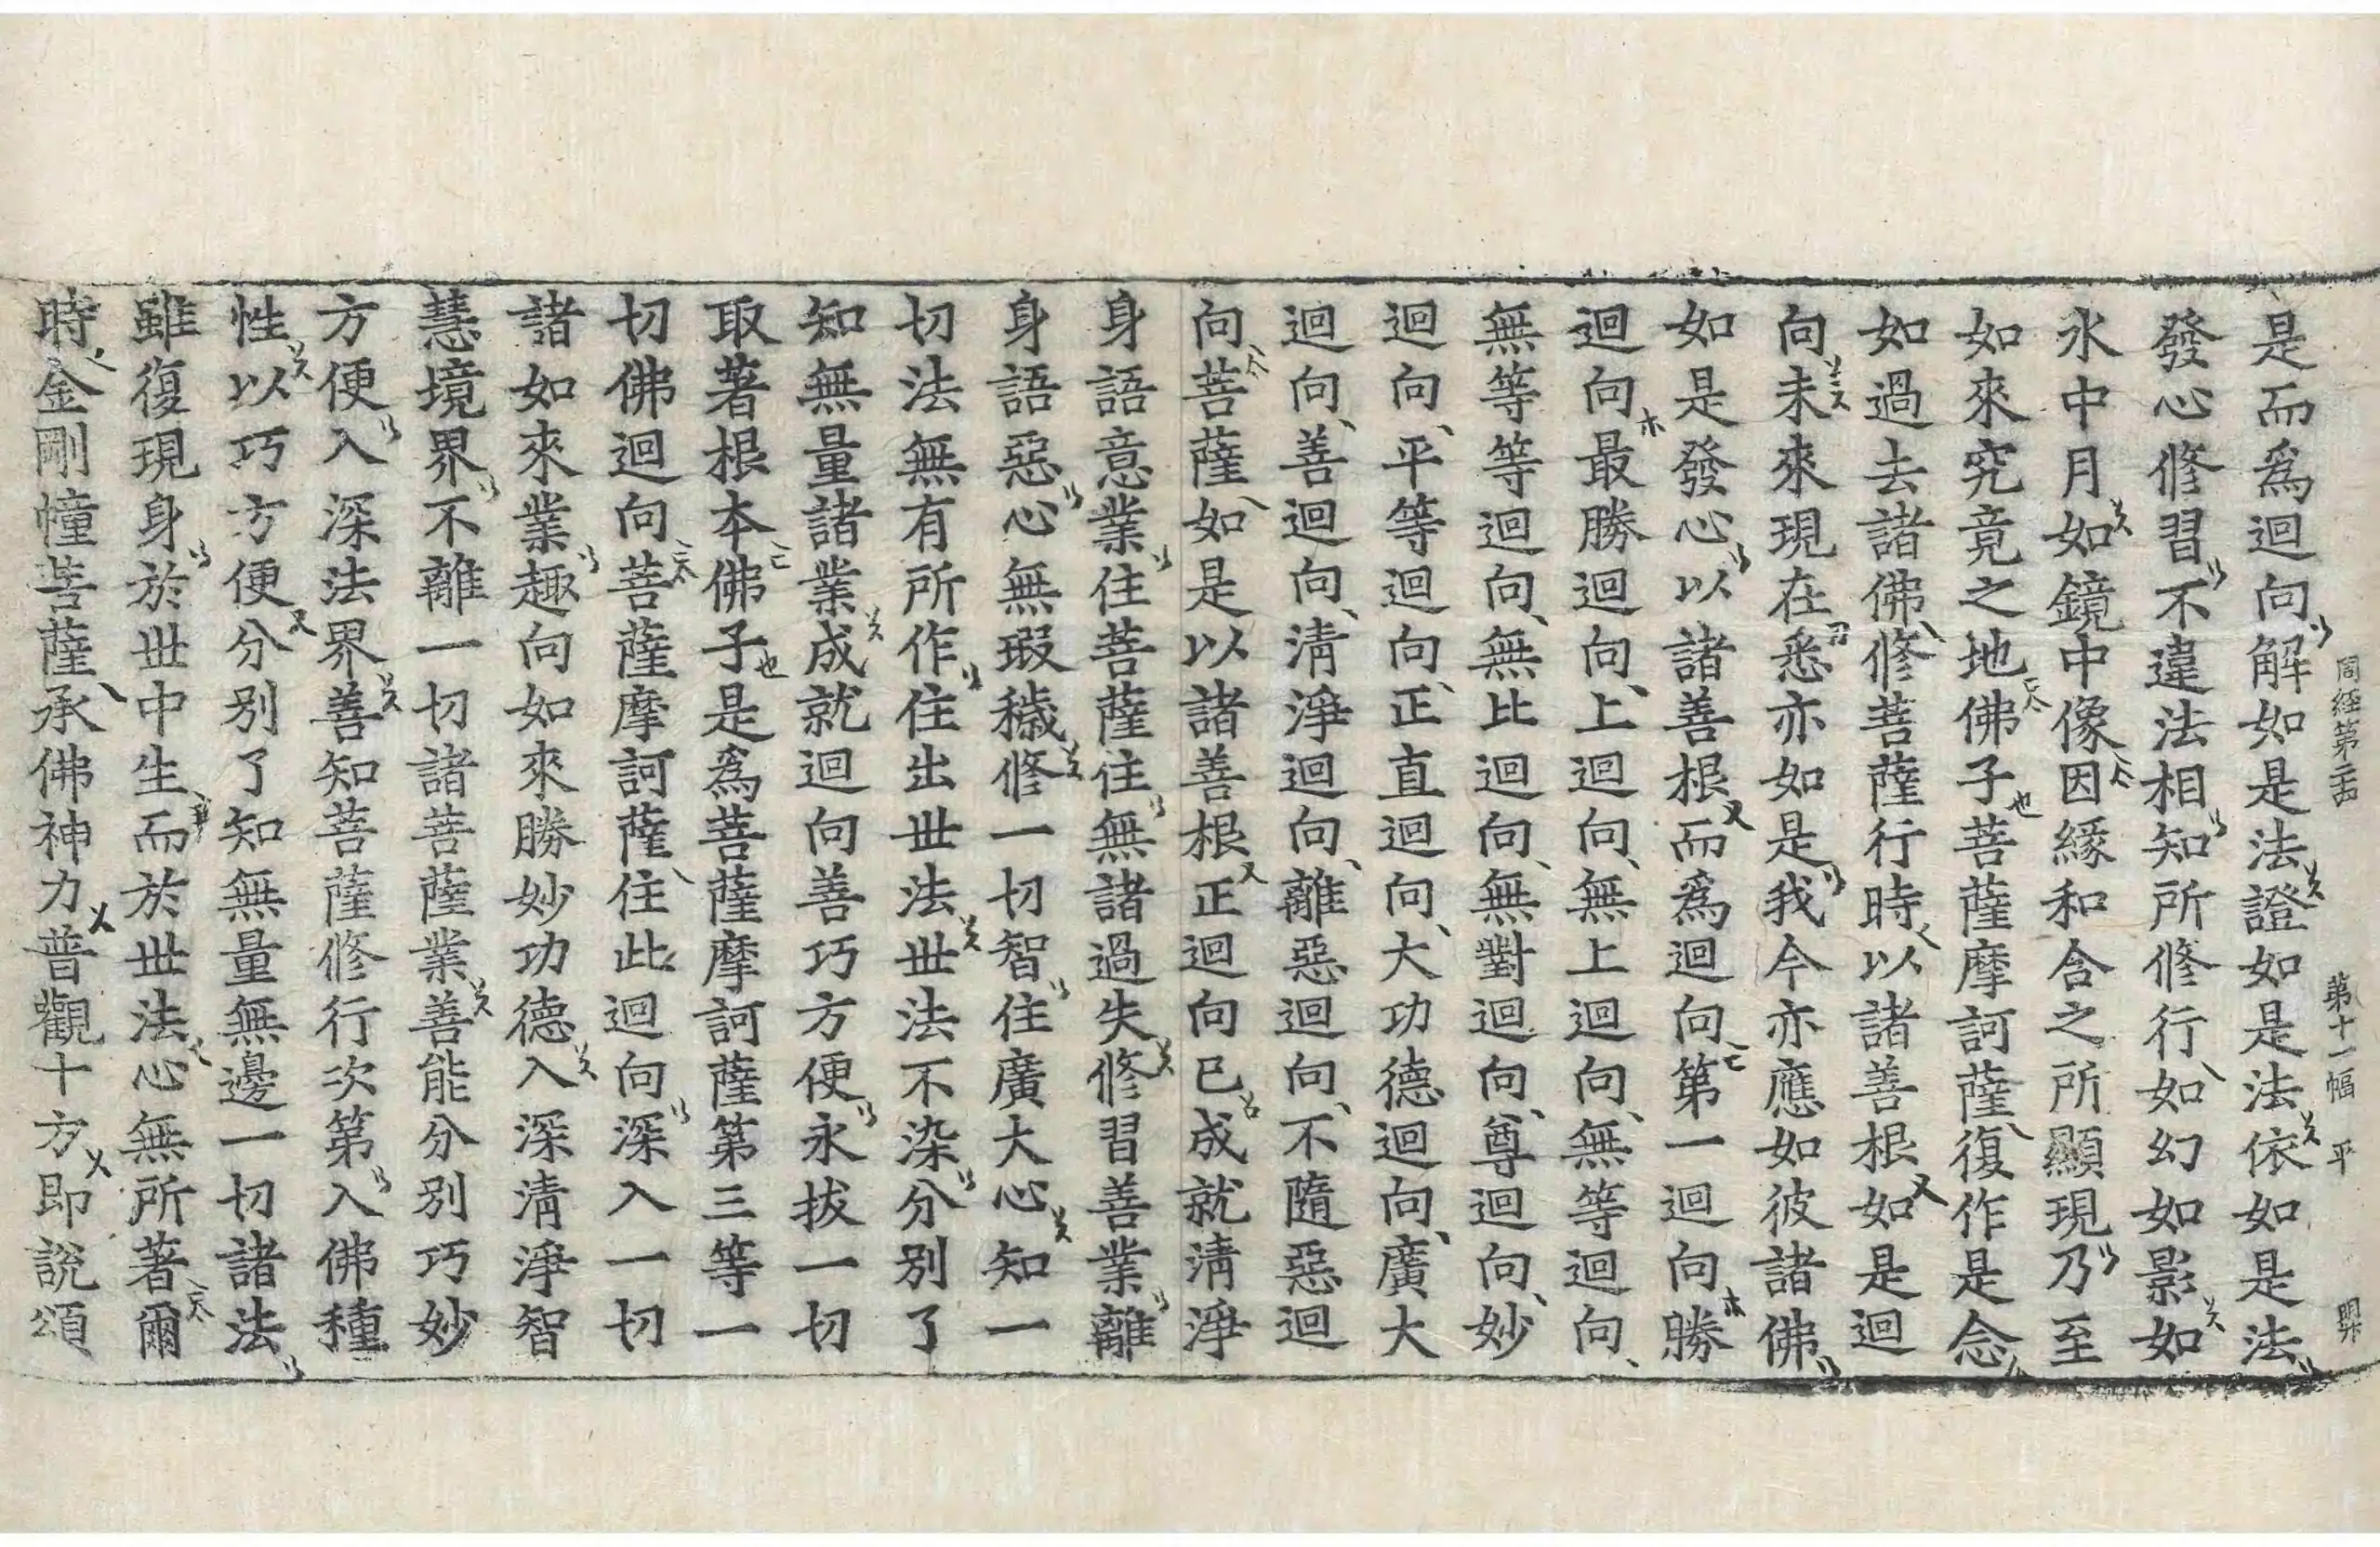 周經第二十四 第十一幅 平
是而爲迴向解如是法證如是法依如是法
發心修習不違法相知所修行如幻如影如
水中月如鏡中像因緣和合之所顯現乃至
如來究竟之地佛子菩薩摩訶薩復作是念
如過去諸佛修菩薩行時以諸善根如是迴
向未來現在悉亦如是我今亦應如彼諸佛
如是發心以諸善根而爲迴向第一迴向勝
迴向最勝迴向上迴向無上迴向無等迴向
無等等迴向無比迴向無對迴向尊迴向妙
迴向平等迴向正直迴向大功德迴向廣大
迴向善迴向清淨迴向離惡迴向不隨惡迴
向菩薩如是以諸善根正迴向已成就清淨
身語意業住菩薩住無諸過失修習善業離
身語惡心無瑕穢修一切智住廣大心知一
切法無有所作住出世法世法不染分別了
知無量諸業成就迴向善巧方便永拔一切
取著根本佛子是爲菩薩摩訶薩第三等一
切佛迴向菩薩摩訶薩住此迴向深入一切
諸如來業趣向如來勝妙功德入深清淨智
慧境界不離一切諸菩薩業善能分別巧妙
方便入深法界善知菩薩修行次第入佛種
性以巧方便分別了知無量無邊一切諸法
雖復現身於世中生而於世法心無所著爾
時金剛幢菩薩承佛神力普觀十方即說頌